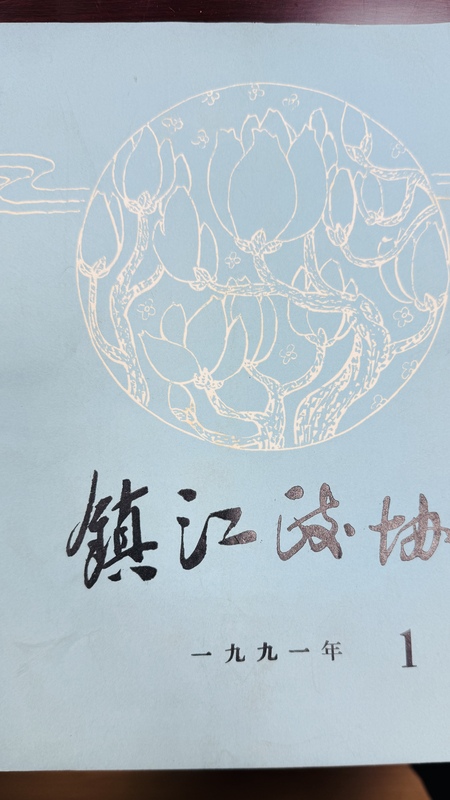 鎮江政协
一九九一年 1